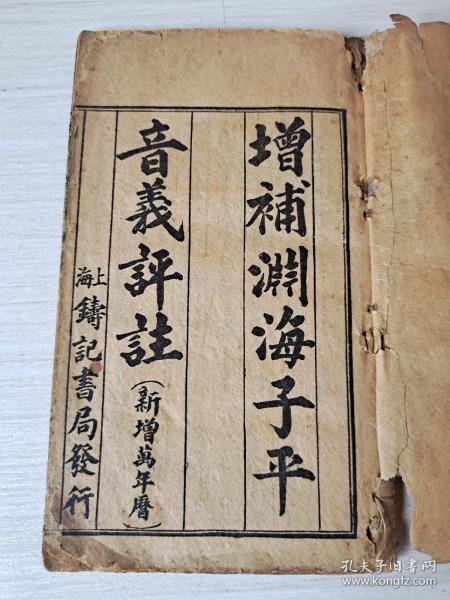 增補淵海子平
音義評註
(新增萬年曆)
上海
鑄記書局發行
孔夫子旧书网
www.kongfz.com